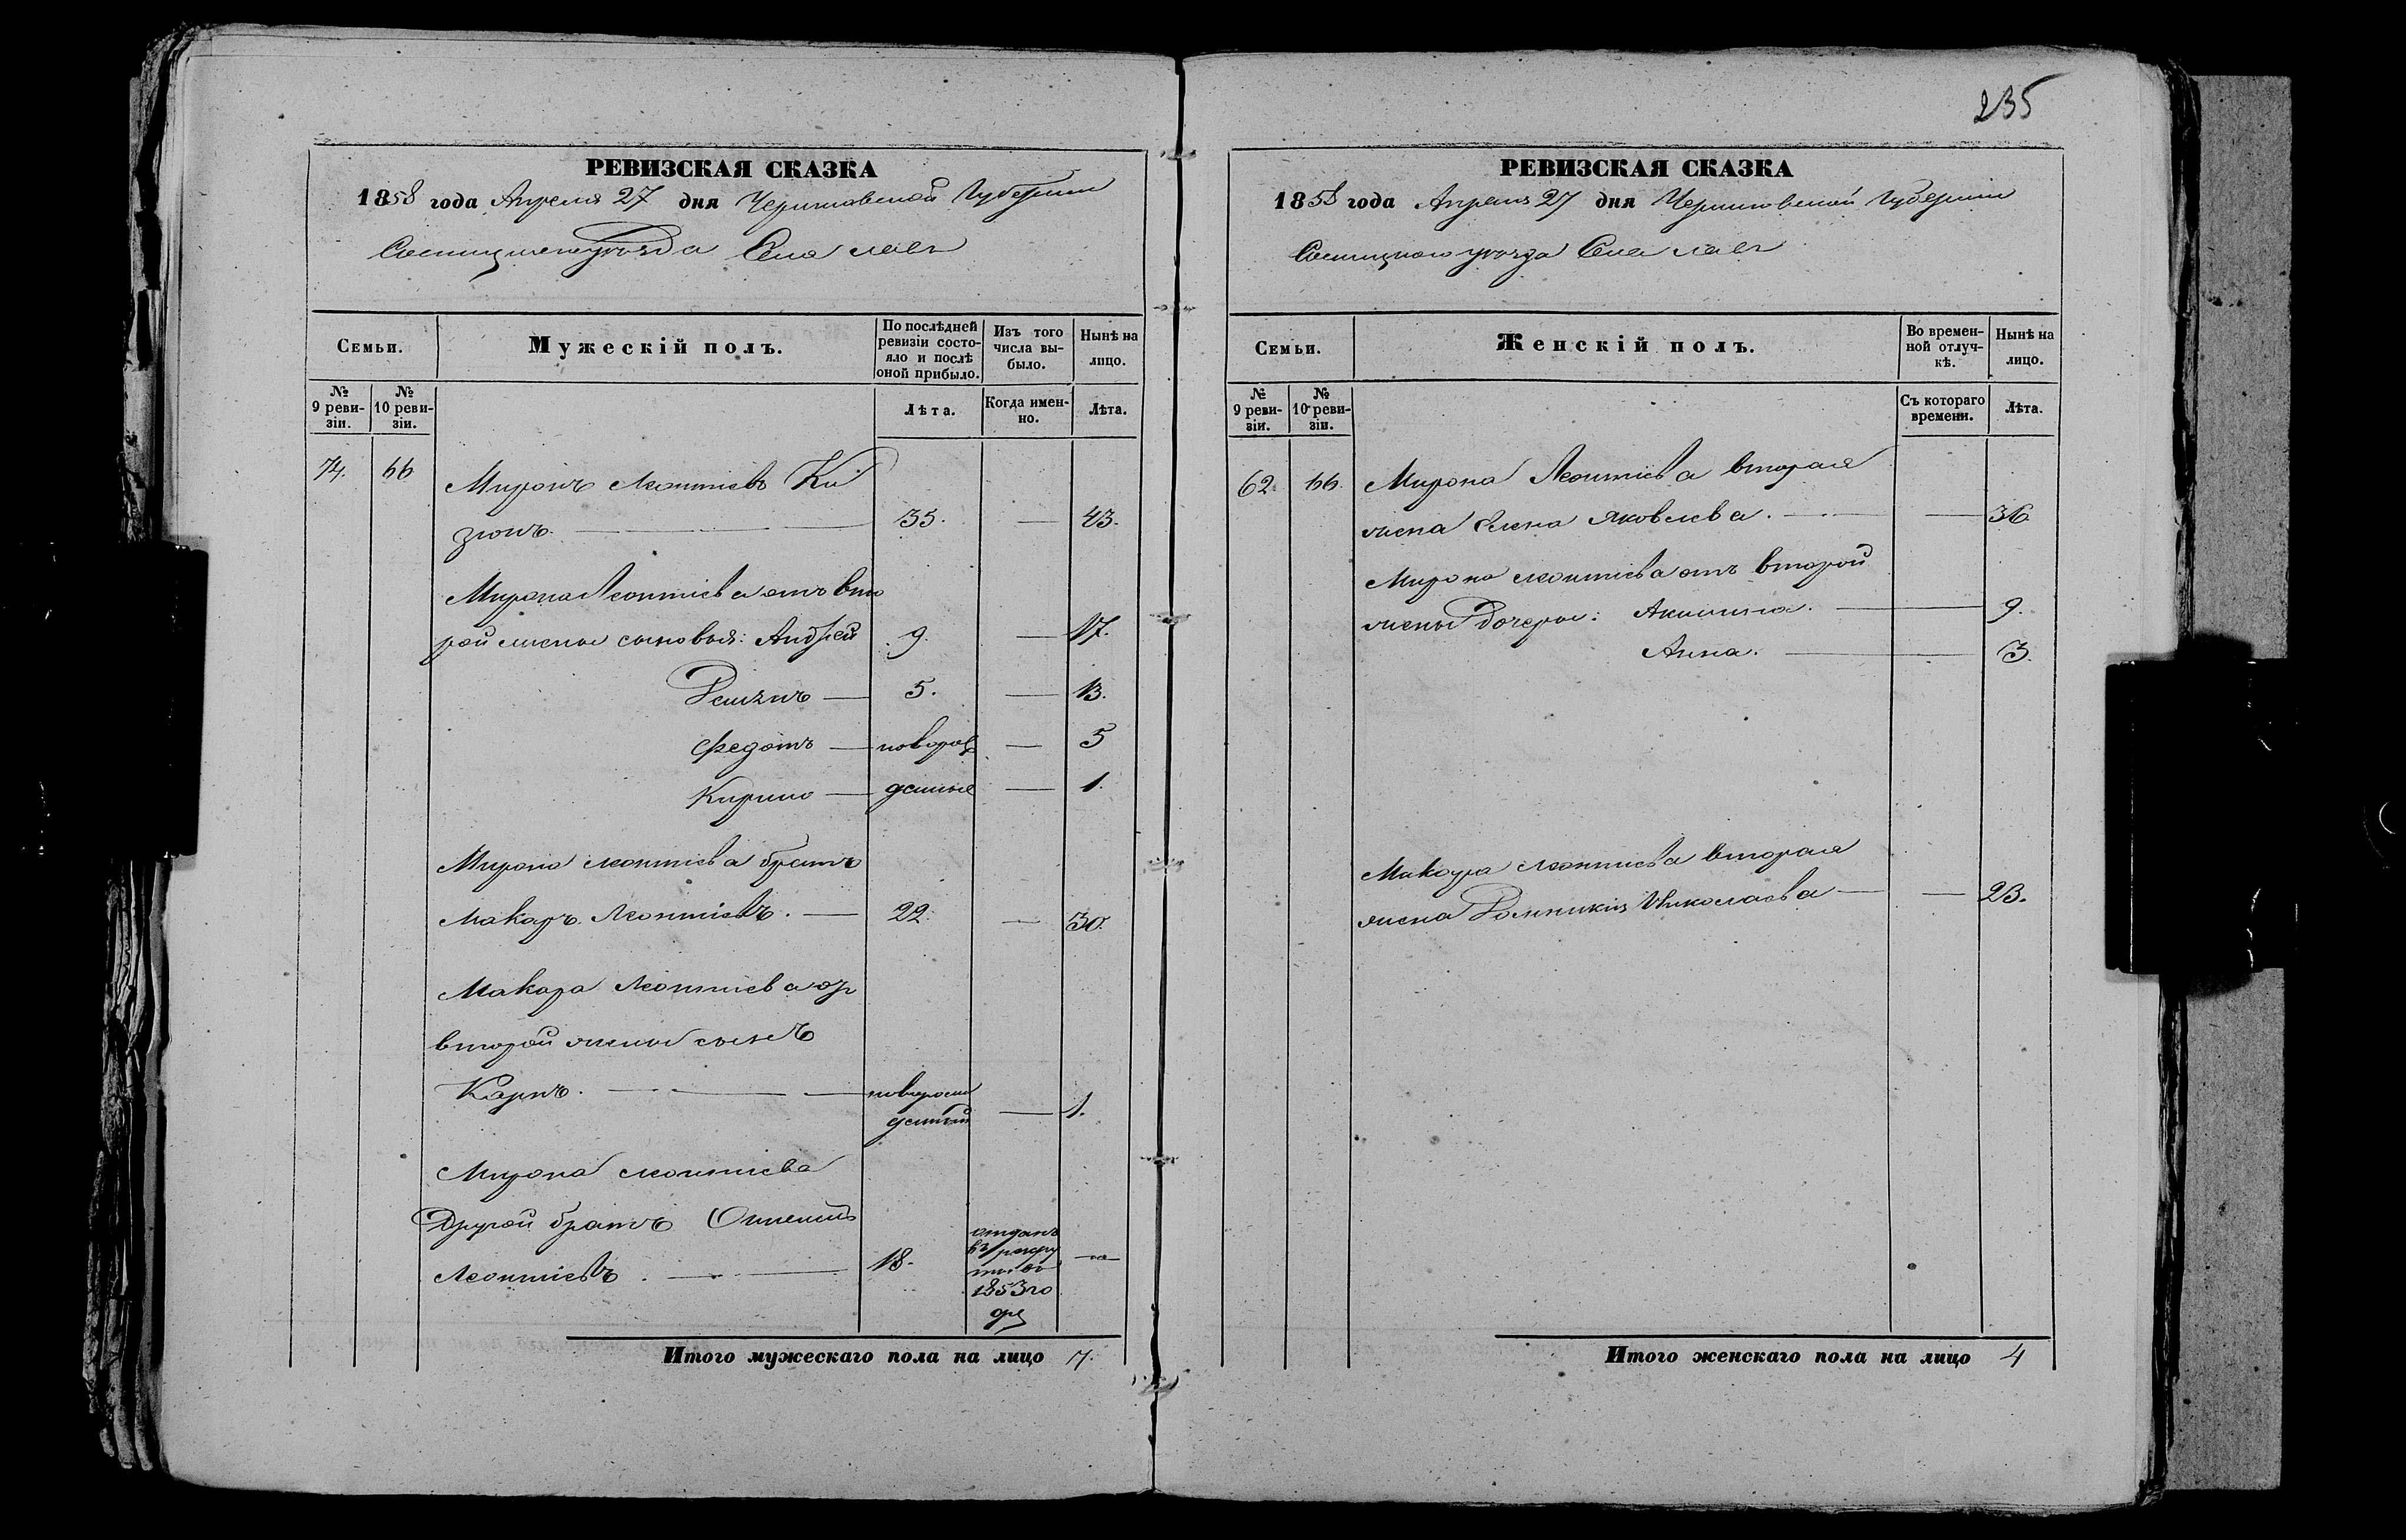 235
РЕВИЗСКАЯ СКАЗКА
1858 года Апреля 27 дня Черниговской Губернии
Сосницкого уѣзда Села
Семьи.
Мужескій полъ.
По послѣдней ревизіи состояло и послѣ оной прибыло.
Изъ того числа выбыло.
Нынѣ на лицо.
№ 9 ревизіи.
№ 10 ревизіи.
Лѣта.
Когда именно.
Лѣта.
74. 66 Миронъ Леонтіевъ Ки
зюнъ. — 35. — 43.
Мирона Леонтіева отъ вто
рой жены сыновья: Андрей 9. — 17.
— 5. — 13.
Федотъ — новорож — 5
Кирило — денные — 1.
Мирона Леонтіева братъ
Макаръ Леонтіевъ. — 22. — 30.
Макара Леонтіева от
второй жены сынъ
Карпъ. — новорож
денный — 1.
Мирона Леонтіева
Другой братъ
Леонтіевъ. — 18. отданъ
въ рекру
ты въ
1853 го
дѣ —
Итого мужескаго пола на лицо 7.
РЕВИЗСКАЯ СКАЗКА
1858 года Апреля 27 дня Черниговской Губерніи
Сосницкого уѣзда Села
Семьи.
Женскій полъ.
Во временной отлучкѣ.
Нынѣ на лицо.
№ 9 ревизіи.
№ 10 ревизіи.
Съ котораго времени.
Лѣта.
62. 66. Мирона Леонтіева вторая
жена Елена Яковлева. — — 36
Мирона Леонтіева отъ второй
жены Дочери: Акилина. — 9.
Анна. — 3.
Макара Леонтиева вторая
жена Домникия Николаева — — 23.
Итого женскаго пола на лицо 4